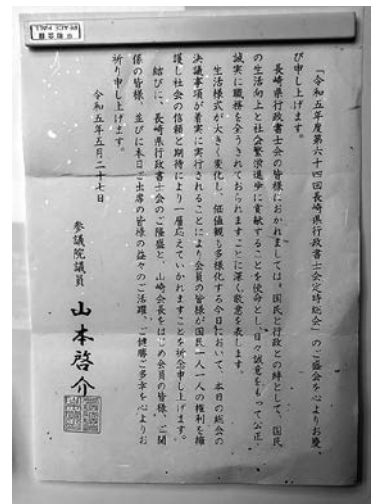 「令和五年度第六十四回長崎県行政書士会定時総会」のご盛会を心よりお慶
び申し上げます。
長崎県行政書士会の皆様におかれましては、国民と行政との絆として、国民
の生活向上と社会繁栄進歩に貢献することを使命とし、日々誠意をもって公正・
誠実に職務を全うされておられますことに深く敬意を表します。
生活様式が大きく変化し、価値観も多様化する今日において、本日の総会の
決議事項が着実に実行されることにより会員の皆様が国民一人一人の権利を擁
護し社会の信頼と期待により一層応えていかれますことを祈念申し上げます。
結びに、長崎県行政書士会のご隆盛と、山崎会長をはじめ会員の皆様、ご関
係の皆様、並びに本日ご出席の皆様の益々のご活躍、ご健勝ご多幸を心よりお
祈り申し上げます。
令和五年五月二十七日
参議院議員 山本啓介